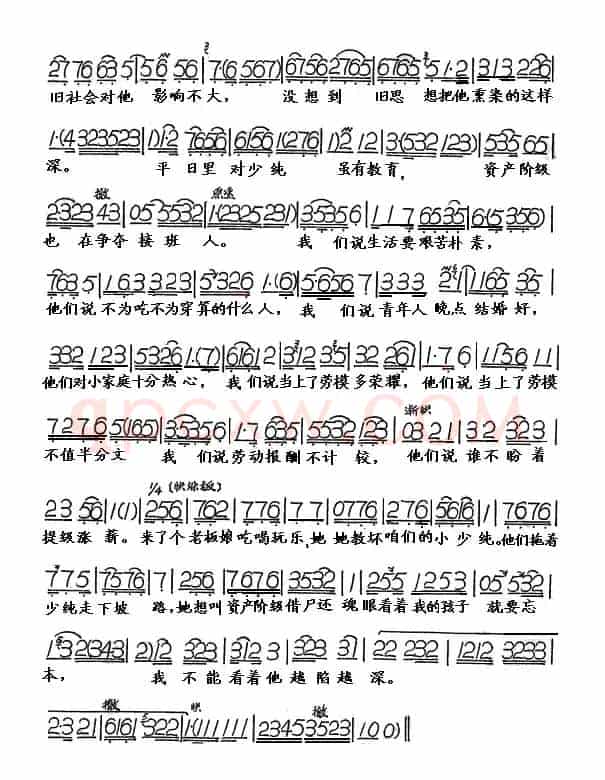 2776 635|56 56|7(6 567)|6756 2765|6765 51·2|313 226|
旧社会对他 影响不大， 没想到 旧思 想把他熏染的这样
1·(4 323523|1)12 7656|6156 1(276|1)2 12|3(532 123)|535 65|
深。 平日里对少纯 虽有教育， 资产阶级
撤
2323 43|05 5532|1·(2325231)|35356|117 6535|6(5 356)|
也 在争夺 接班 人。 我 们说生活要艰苦朴素，
763 5|163 323|5·326 1·(6)|5·656 7|333 21|1165 35|
他们说 不为吃不为穿算的什么人， 我 们说青年人 晚点 结婚好，
332 123|5326|1·(7)|6161 2|312 35|32 261|1·76|1156 11|
他们对小家庭十分热心， 我们说当上了劳模多荣耀， 他们说当上了劳模
7276 5(165)|35356|1·7 635|5532 123|03 21|32 323|
不值半分文 我 们说劳动报酬不计 较， 他们说 谁不盼着
23 56|1(1)|1/4 256|762|776|77|0776|276|566|7676|
提级涨 薪。来了个老板娘吃喝玩乐，她她教坏咱们的小少纯。他们拖着
775|7576|7|256|7676|3532|1 255|1253|05 532|
少纯走下坡 路，她想叫资产阶级借尸还 魂眼看着我的孩子 就要忘
1·3 2343|2)2 323|312 3|323 31|22 232|1212 3233|
本， 我 不能看着他越陷越 深。
撤
23 21|6161 322|1·(111111|23453523|100)‖
gpcxw.COM